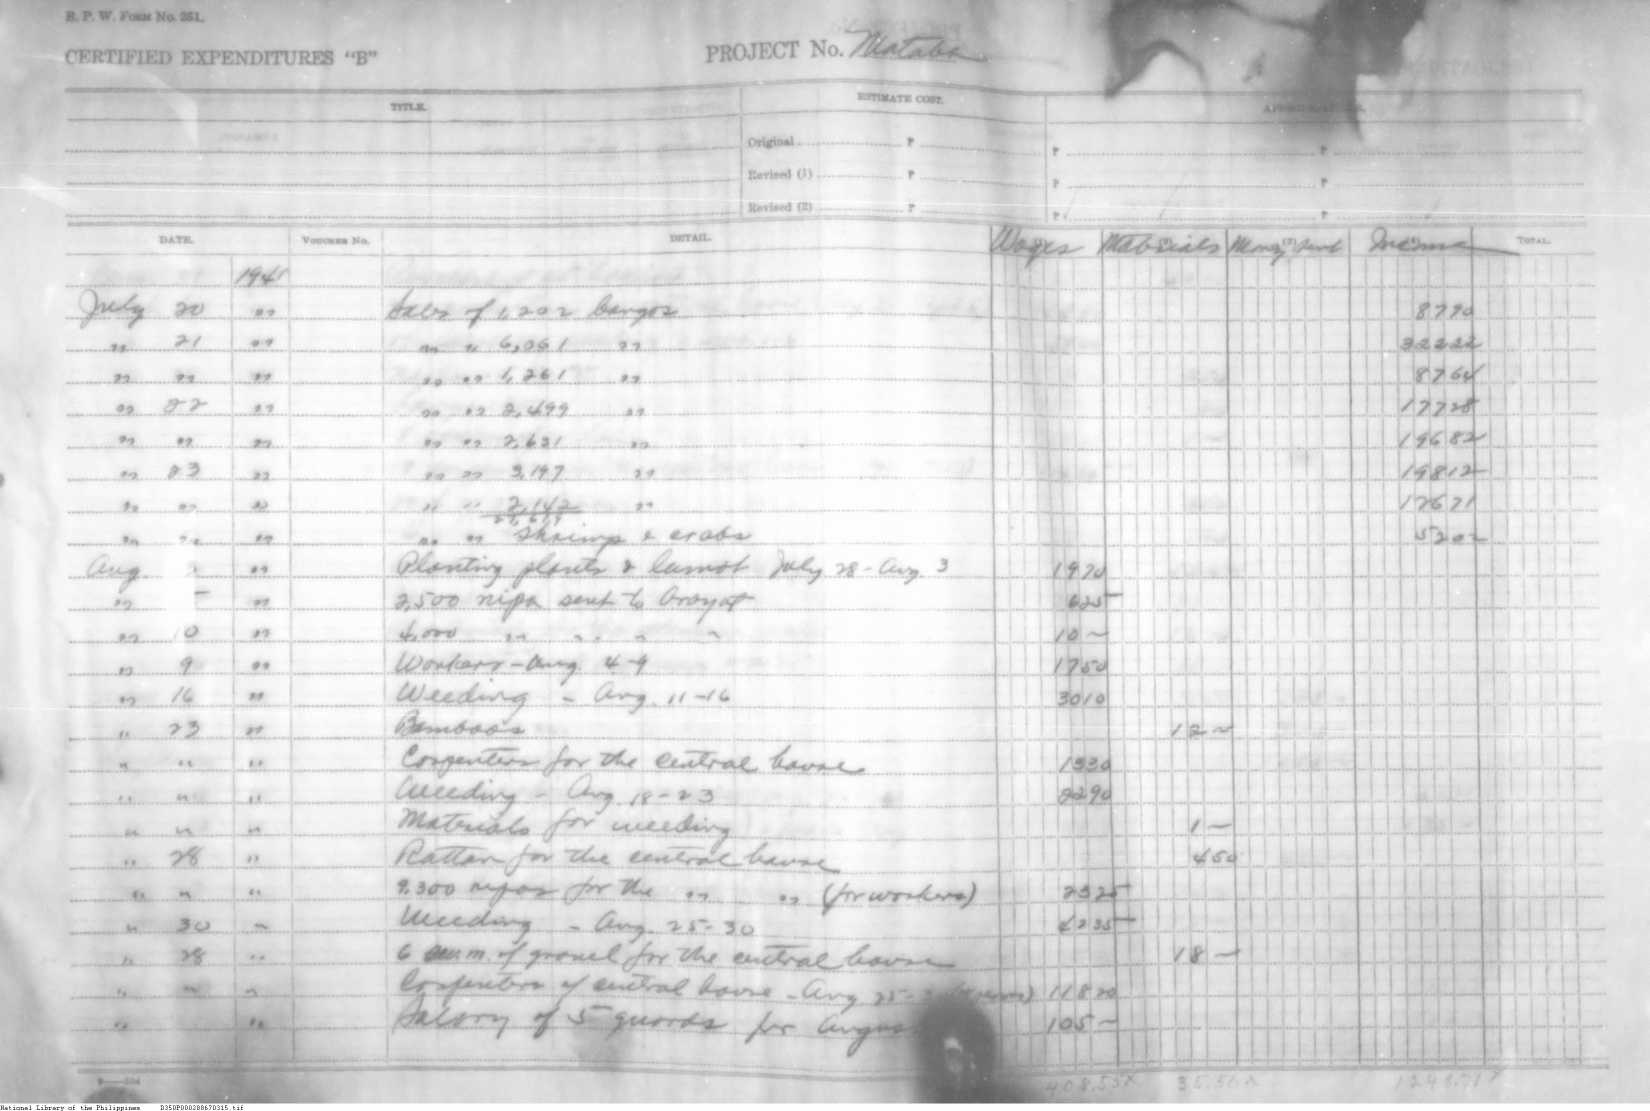 B. P. W. Form No. 251.
CERTIFIED EXPENDITURES "B" PROJECT No. Mataba
TITLE. ESTIMATE COST.
Original P P P
Revised (1) P P P
Revised (2) P P P
DATE. Voucher No. DETAIL. Wages Materials Money Sent Income TOTAL.
1941
July 20 " Sales of 1,202 bangos 8790
" 21 " " " 6,061 " 32222
" " " " " 1,261 " 8764
" 22 " " " 2,499 " 17728
" " " " " 2,631 " 19682
" 23 " " " 3,197 " 19812
" " " " " 2,142 " 17671
" " " " " Shrimps & crabs 5202
Aug " Planting plants & lumot July 28 - Aug. 3 1970
" " 2,500 nipa sent to Arayat 625
" 10 " 4,000 " " " " 10 -
" 9 " Workers - Aug. 4-9 1750
" 16 " Weeding - Aug. 11-16 3010
" 23 " Bamboos 12 -
" " " Carpenters for the central house 1330
" " " Weeding - Aug 18-23 2290
" " " Materials for weeding 1 -
" 28 " Rattan for the central house 450
" " " 9,300 nipas for the " " (for workers) 2325
" 30 " Weeding - Aug. 25-30 4235
" 28 " 6 cu. m. of gravel for the central house 18 -
" " " Carpenters of central house - Aug 25- 11820
" " Salary of 5 guards for August 105 -
408.55 35.50
National Library of the Philippines D350P000288670315.tif